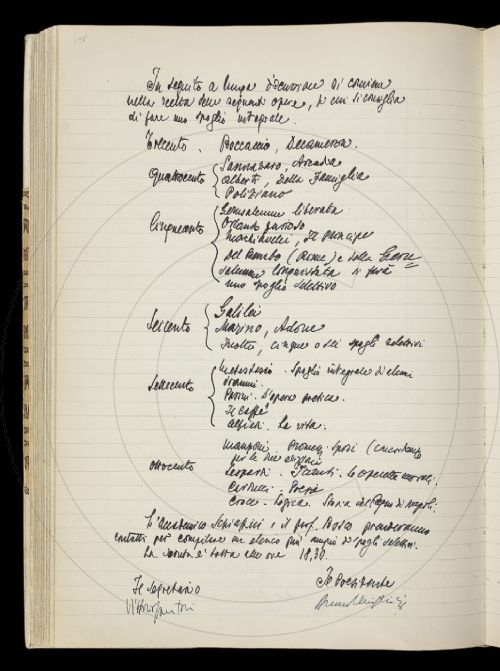 In seguito a lunga discussione si conviene
nella scelta delle seguenti opere, di cui si consiglia
di fare uno spoglio integrale.
Trecento. Boccaccio, Decameron.
Quattrocento
Sannazaro, Arcadia
Alberti, Della Famiglia
Poliziano
Cinquecento
Gerusalemme liberata
Orlando furioso
Machiavelli, Il principe
Del Bembo (Rime) e della Geru-
salemme Conquistata si farà
uno spoglio selettivo
Seicento
Galilei
Marino, Adone
Inoltre, cinque o sei spogli selettivi
Settecento
Metastasio. Spoglio integrale di alcuni
drammi.
Parini. L'opera poetica.
Il Caffè
Alfieri. La vita.
Ottocento
Manzoni Promessi Sposi (
per le due edizioni
Leopardi. I Canti. Le operette morali.
Carducci. Poesie
Croce. Logica. Storia del Regno di Napoli.
L'accademico Schiaffini e il prof. prenderanno
contatti per compilare un elenco più ampio di spogli selettivi.
La seduta è tolta alle ore 18,30.
Il Segretario
Il Presidente